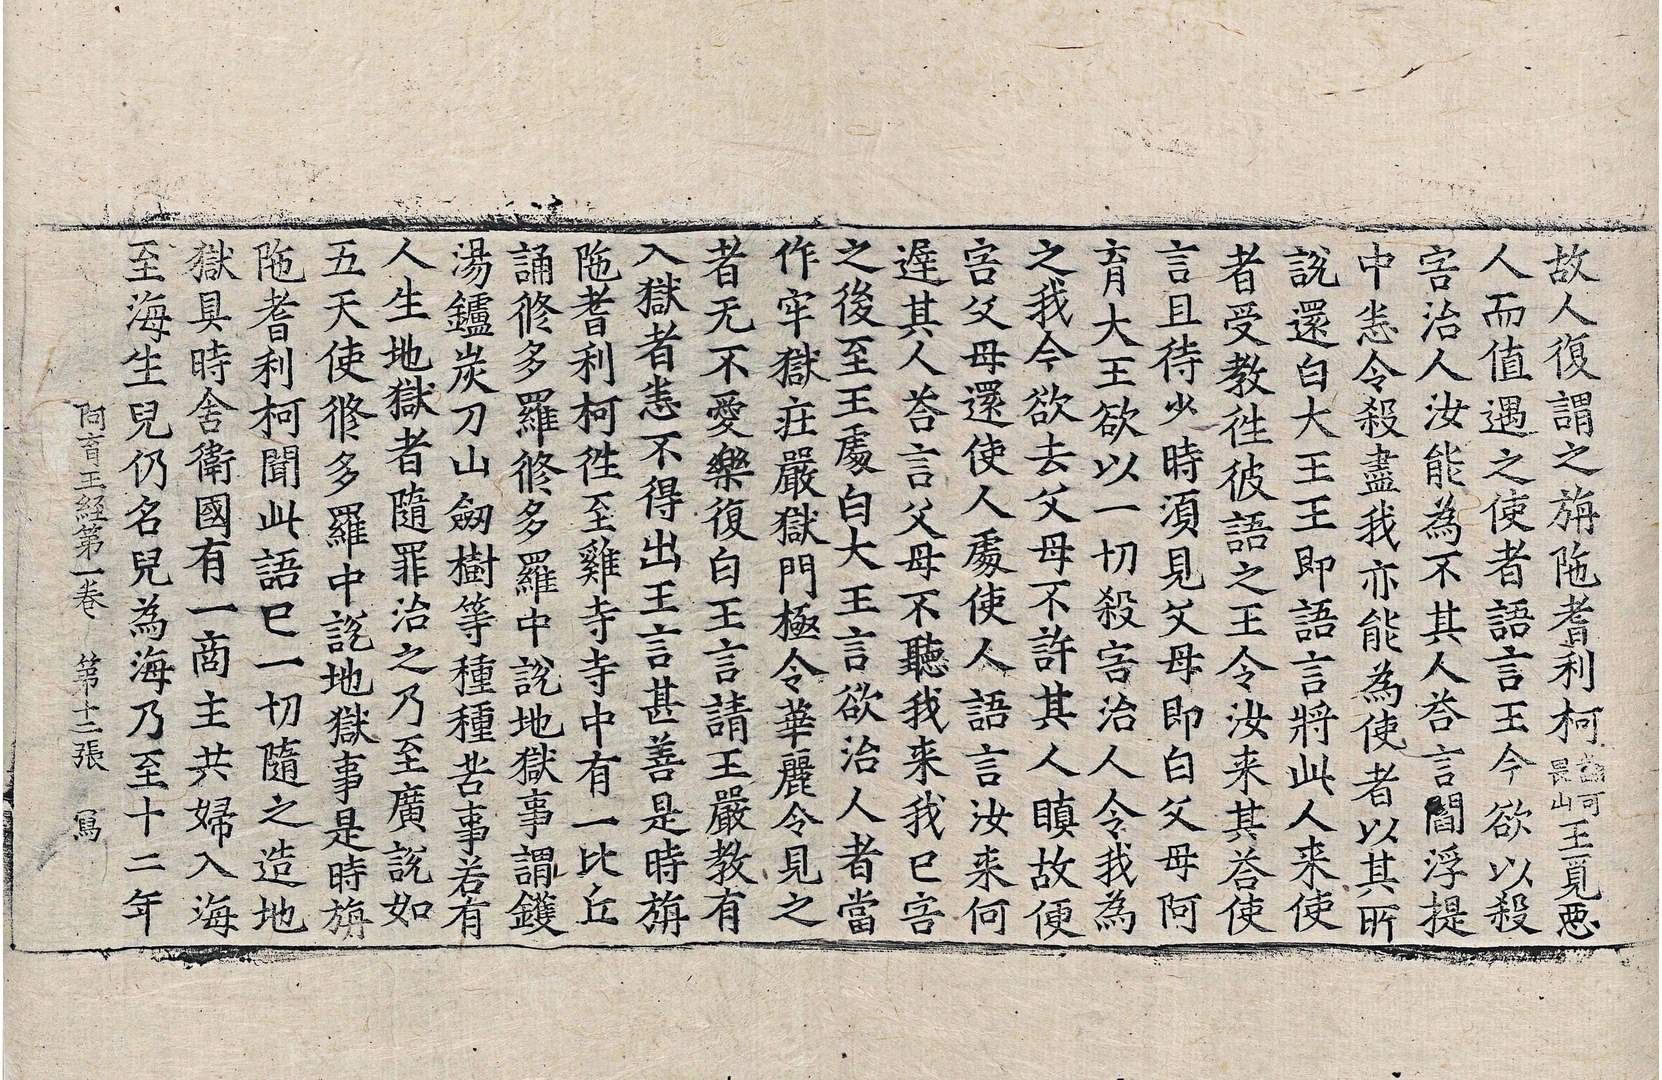 故人復謂之旃陁耆利柯畏山可王覓惡
人而值遇之使者語言王今欲以殺
害治人汝能為不其人答言閻浮提
中悉令殺盡我亦能為使者以其所
説還白大王王即語言將此人来使
者受教徃彼語之王令汝来其答使
言且待少時須見父母即白父母阿
育大王欲以一切殺害治人令我為
之我今欲去父母不許其人瞋故便
害父母還使人處使人語言汝来何
遅其人荅言父母不聽我来我已害
之後至王處白大王言欲治人者當
作牢獄莊嚴獄門極令華麗令見之
者无不愛樂復白王言請王嚴教有
入獄者悉不得出王言甚善是時旃
陁耆利柯徃至雞寺寺中有一比丘
誦修多羅修多羅中説地獄事謂鑊
湯鑪炭刀山劒樹等種種苦事若有
人生地獄者隨罪治之乃至廣説如
五天使修多羅中説地獄事是時旃
陁耆利柯聞此語已一切隨之造地
獄具時舍衛國有一商主共婦入海
至海生兒仍名兒為海乃至十二年
阿育王經第一卷 第十二張 寫